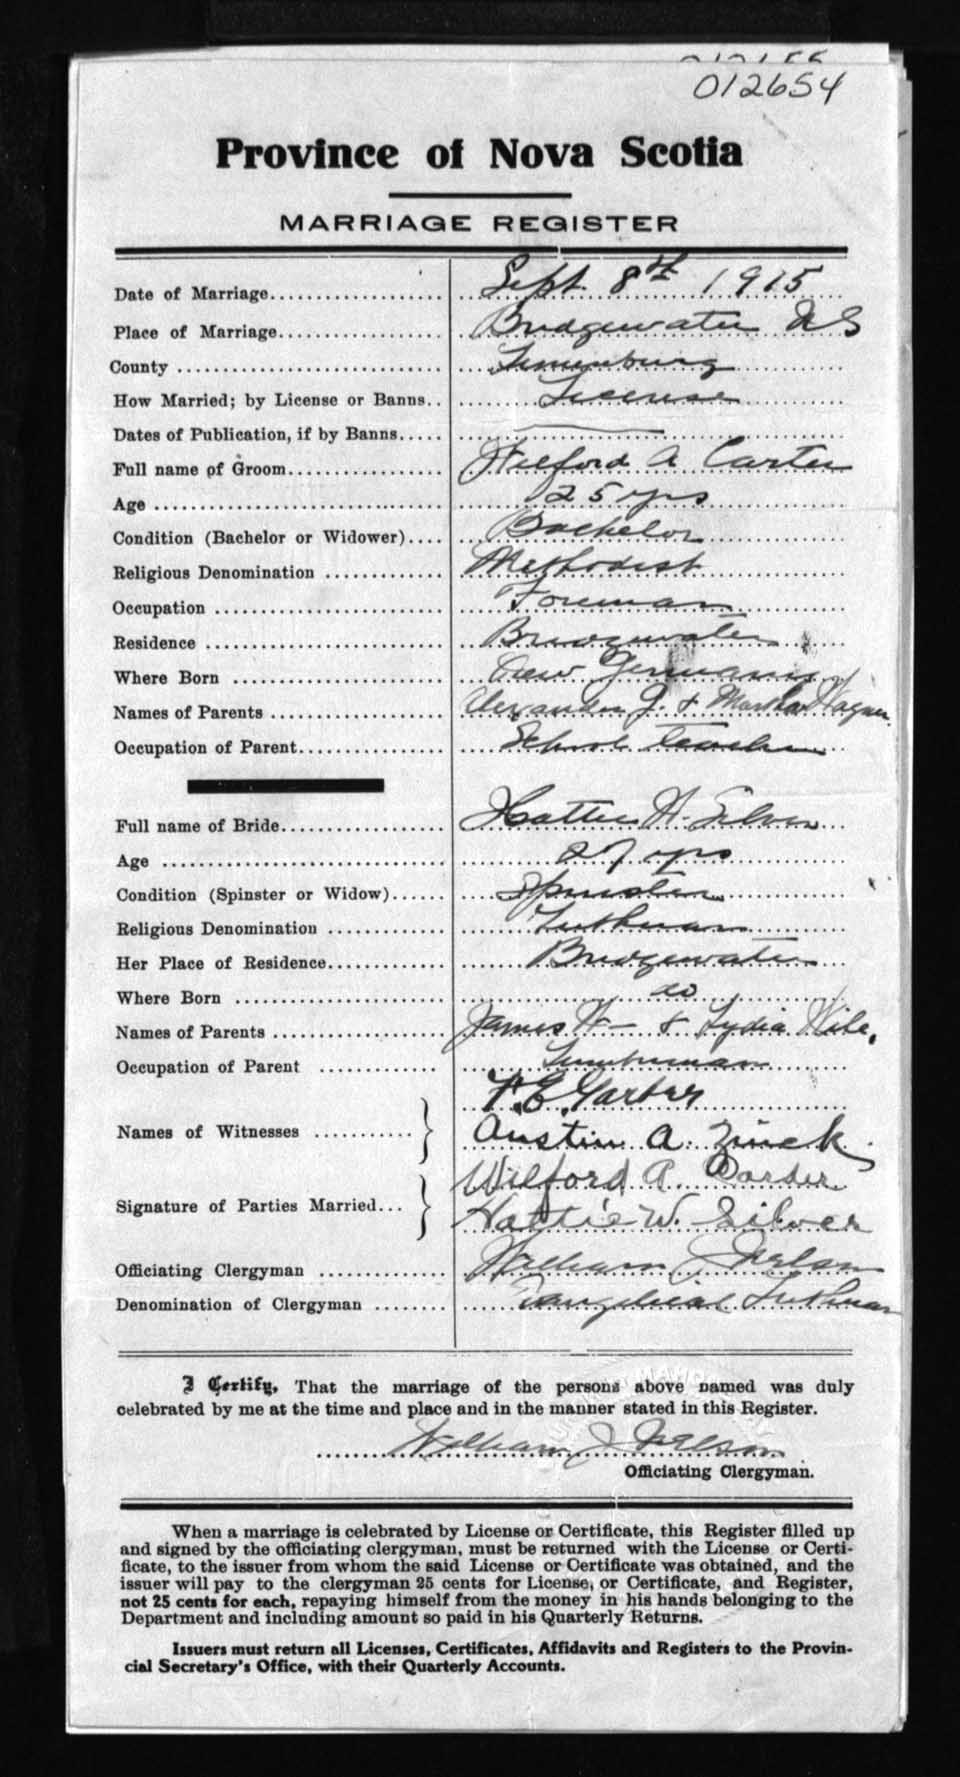 012654
Province of Nova Scotia
MARRIAGE REGISTER
Date of Marriage Sept. 8th 1915
Place of Marriage Bridgewater NS
County Lunenburg
How Married; by License or Banns License
Dates of Publication, if by Banns
Full name of Groom Wilford A Carter
Age 25 yrs
Condition (Bachelor or Widower) Bachelor
Religious Denomination Methodist
Occupation Foreman
Residence Bridgewater
Where Born New Germany
Names of Parents Alexander J. & Martha Wagner
Occupation of Parent School teacher
Full name of Bride Hattie W. Silver
Age 27 yrs
Condition (Spinster or Widow) Spinster
Religious Denomination Lutheran
Her Place of Residence Bridgewater
Where Born do
Names of Parents James W - & Lydia Wile,
Occupation of Parent Lumberman
F. E.
Names of Witnesses Austin A. Zinck
Wilford A.
Signature of Parties Married Hattie W. Silver
Officiating Clergyman William J Nelson
Denomination of Clergyman Evangelical Lutheran
I Certify, That the marriage of the persons above named was duly
celebrated by me at the time and place and in the manner stated in this Register.
William J Nelson
Officiating Clergyman.
When a marriage is celebrated by License or Certificate, this Register filled up
and signed by the officiating clergyman, must be returned with the License or Certi-
ficate, to the issuer from whom the said License or Certificate was obtained, and the
issuer will pay to the clergyman 25 cents for License, or Certificate, and Register,
not 25 cents for each, repaying himself from the money in his hands belonging to the
Department and including amount so paid in his Quarterly Returns.
Issuers must return all Licenses, Certificates, Affidavits and Registers to the Provin-
cial Secretary's Office, with their Quarterly Accounts.